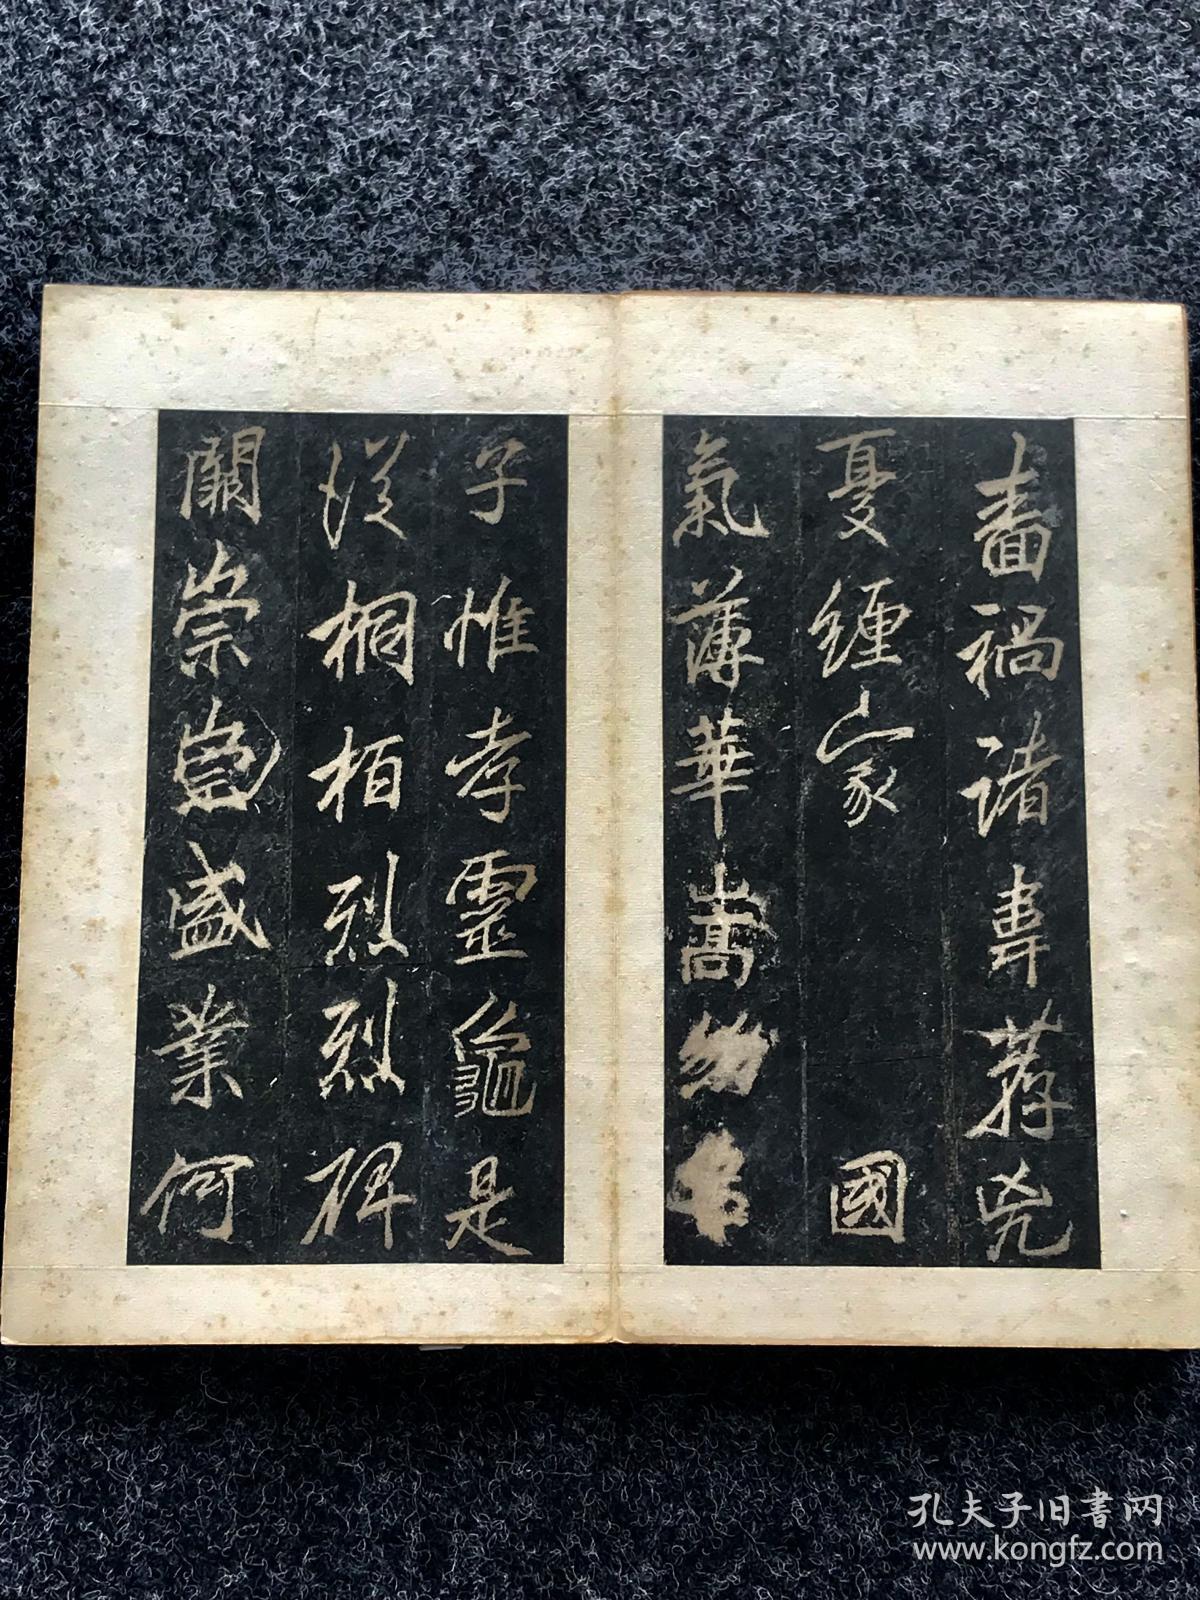 禍諸韋荐兇
憂纏家國
氣薄華嵩
子惟孝靈龜是
從桐栢烈烈碑
闕崇崇盛業何
孔夫子旧書网
www.kongfz.com